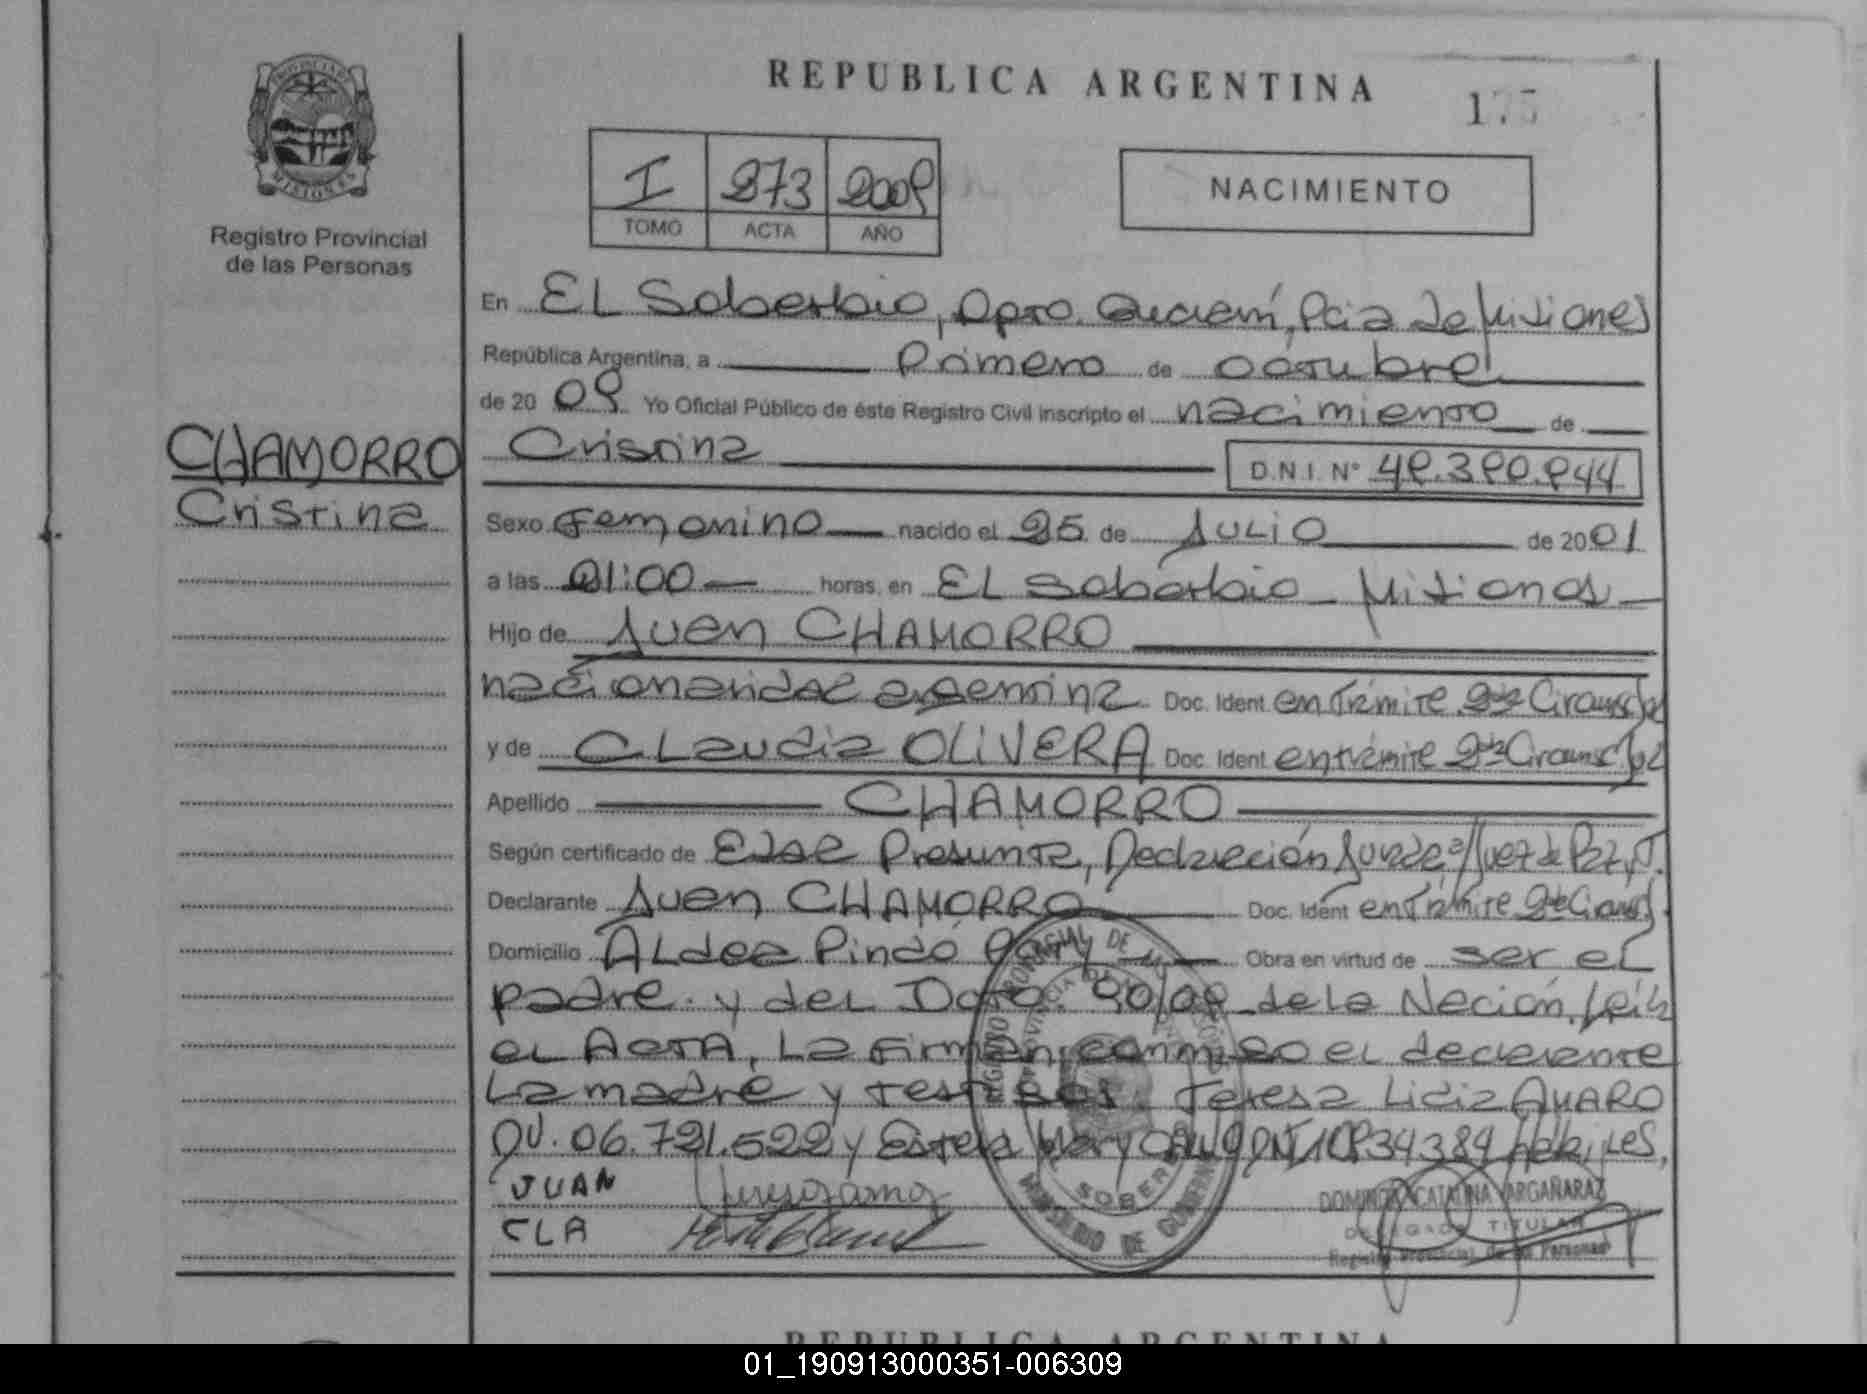 REPUBLICA ARGENTINA
175
PROVINCIA DE
MISIONES
Registro Provincial
de las Personas
I 273 2009
TOMO ACTA AÑO
NACIMIENTO
En EL Soberbio, Dpto. Guaraní, Pcia de Misiones
República Argentina, a Primero de octubre
de 2009 Yo Oficial Público de éste Registro Civil inscripto el nacimiento de
CHAMORRO
Cristina
Cristina D.N.I. Nº 49.390.944
Sexo Femenino nacido el 25 de JULIO de 2001
a las 21:00 horas, en EL Soberbio - Misiones
Hijo de Juan CHAMORRO
nacionalidad argentina Doc. Ident. en Trámite 2da Circunsc
y de CLaudia OLIVERA Doc. Ident. en trámite 2da Circunsc
Apellido CHAMORRO
Según certificado de Edad Presunta, Declaración Jurada Juez de Paz
Declarante Juan CHAMORRO Doc. Ident en Trámite 2da
Domicilio ALdea Pindó Poty Obra en virtud de ser eL
padre y deL Dcto 90/09 de La Nación. Leída
eL ACTA, La Firman conmigo eL declarante
La madre y testigos Teresa Lidia AMARO
06.721.522 y Estela Mary hábiLes,
JUAN
CLA
REGISTRO PROVINCIAL DE
MINISTERIO DE GOBIERNO
DOMINGA CATALINA VARGAÑARAZ
DELEGADA TITULAR
Registro Provincial de las Personas
REPUBLICA ARGENTINA
01_190913000351-006309